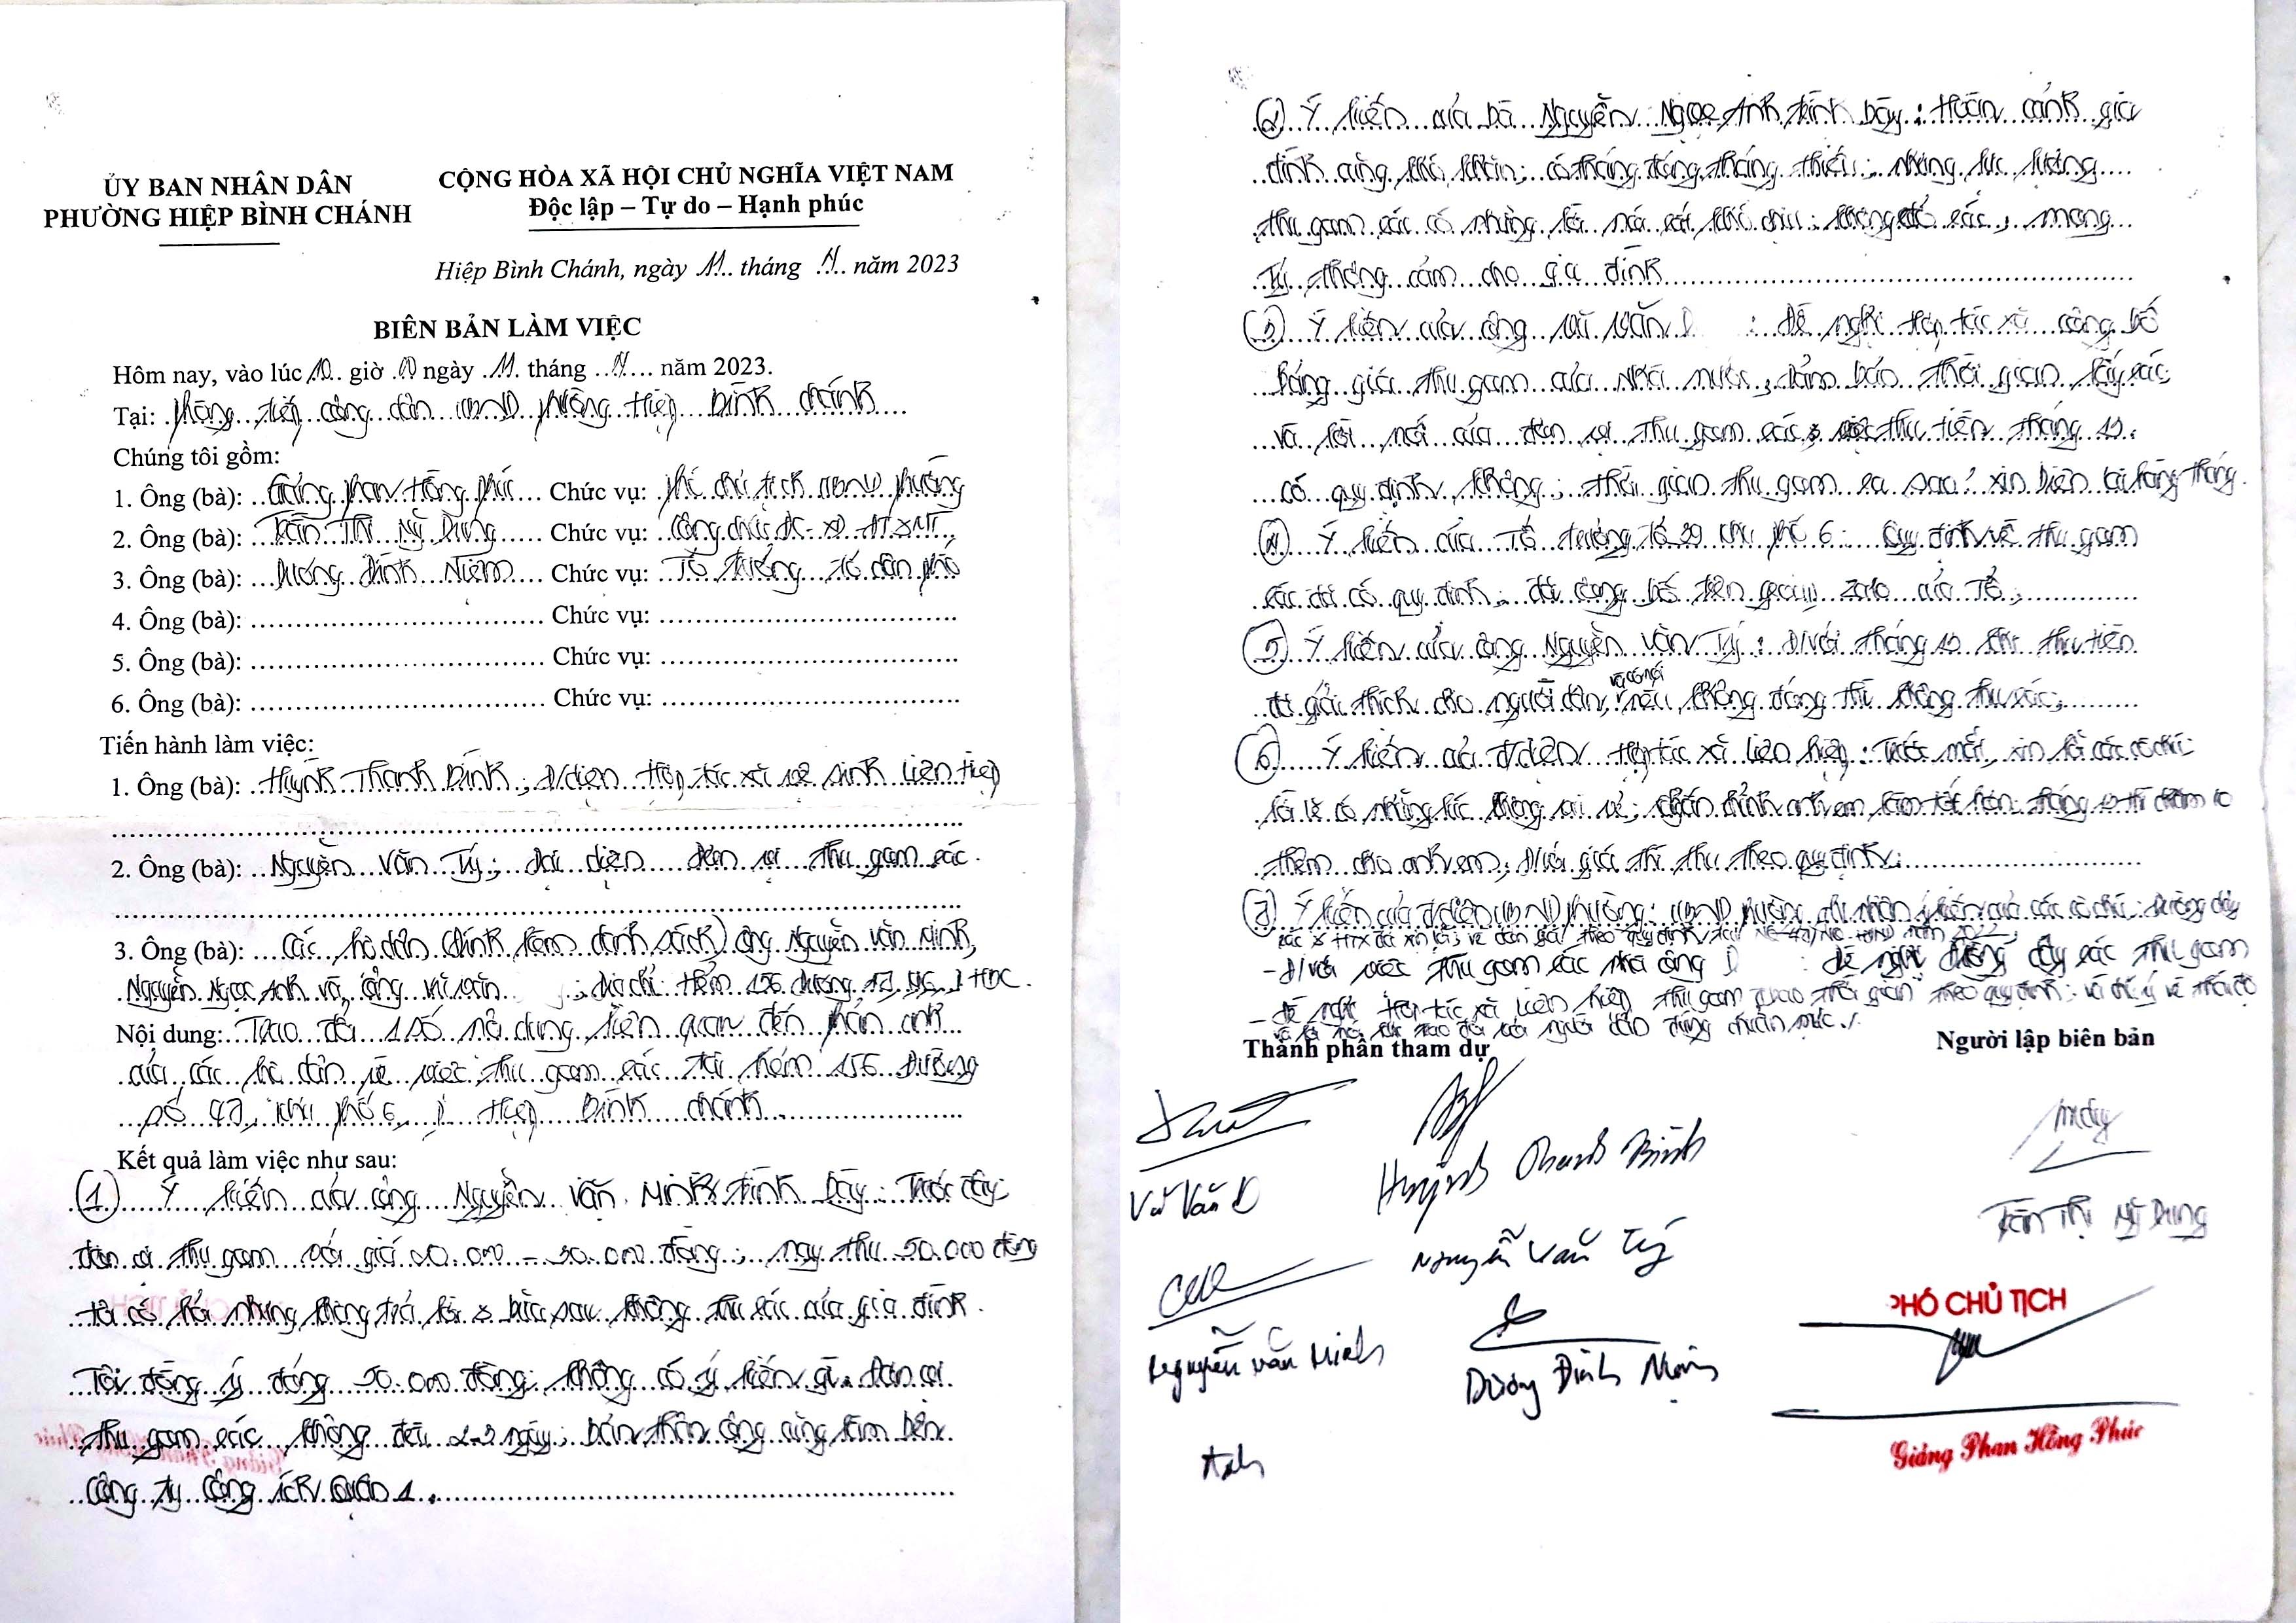 ỦY BAN NHÂN DÂN
PHƯỜNG HIỆP BÌNH CHÁNH
CỘNG HÒA XÃ HỘI CHỦ NGHĨA VIỆT NAM
Độc lập – Tự do – Hạnh phúc
Hiệp Bình Chánh, ngày 11 tháng 4 năm 2023
BIÊN BẢN LÀM VIỆC
Hôm nay, vào lúc 10 giờ 00 ngày 11 tháng 4 năm 2023.
Tại: phòng tiếp công dân UBND phường Hiệp Bình Chánh
Chúng tôi gồm:
1. Ông (bà): Giảng Phan Hồng Phúc Chức vụ: phó chủ tịch UBND phường
2. Ông (bà): Trần Thị Mỹ Dung Chức vụ: công chức ĐC-XD-ĐT&MT
3. Ông (bà): Dương Đình Niệm Chức vụ: Tổ trưởng tổ dân phố
4. Ông (bà): Chức vụ:
5. Ông (bà): Chức vụ:
6. Ông (bà): Chức vụ:
Tiến hành làm việc:
1. Ông (bà): Huỳnh Thanh Bình; Đ/diện Hợp tác xã vệ sinh Liên Hiệp
2. Ông (bà): Nguyễn Văn Tý; đại diện đơn vị thu gom rác.
3. Ông (bà): các hộ dân (đính kèm danh sách) ông Nguyễn Văn Minh,
Nguyễn Ngọc Anh và ông Vũ Văn ; địa chỉ: hẻm 156 đường
Nội dung: Trao đổi 1 số nội dung liên quan đến phản ánh
của các hộ dân về việc thu gom rác tại hẻm 156 Đường
số 47, khu phố 6, P Hiệp Bình Chánh
Kết quả làm việc như sau:
1 Ý kiến của ông Nguyễn Văn Minh trình bày: Trước đây
đơn vị thu gom với giá - 30.000 đồng; nay thu 50.000 đồng
tôi có hỏi nhưng không trả lời & bữa sau không thu rác của gia đình.
Tôi đồng ý đóng 50.000 đồng; không có ý kiến gì. Đơn vị
thu gom rác không đều 2-3 ngày; bản thân ông cũng làm bên
công ty công ích Quận 1.
2 Ý kiến của bà Nguyễn Ngọc Anh trình bày: Hoàn cảnh gia
đình cũng khó khăn; có tháng đóng tháng thiếu; nhưng lực lượng
thu gom rác có những lời nói rất khó chịu; không đổ rác; mong
Tý thông cảm cho gia đình
3 Ý kiến của ông Vũ Văn D : Đề nghị Hợp tác xã công bố
bảng giá thu gom của Nhà nước; đảm bảo thời gian lấy rác
và lời nói của đơn vị thu gom rác; việc thu tiền tháng 13
có quy định không; thời gian thu gom ra sao? xin biên lai hàng tháng.
4 Ý kiến của Tổ trưởng Tổ 29 khu phố 6: Quy định về thu gom
rác đã có quy định; đã công bố trên group zalo của Tổ;
5 Ý kiến của ông Nguyễn Văn Tý: Đ/với tháng 13 khi thu tiền
đã giải thích cho người dân, và có nói nếu không đóng thì không thu rác;
6 Ý kiến của Đ/diện Hợp tác xã Liên hiệp: Trước mắt, xin lỗi các cô chú;
lời lẽ có những lúc không vui vẻ; chấn chỉnh anh em làm tốt hơn; tháng 13 thì
thêm cho anh em; Đ/với giá thì thu theo quy định;
7 Ý kiến của Đ/diện UBND phường: UBND phường ghi nhận ý kiến của các cô chú; Đường dây
rác & HTX đã xin lỗi; về đơn giá theo quy định tại
- Đ/với việc thu gom rác nhà ông D : đề nghị đường dây rác thu gom
- Đề nghị Hợp tác xã Liên hiệp thu gom thời gian theo quy định; và chú ý về thái độ
và lời nói khi trao đổi với người dân đúng chuẩn mực./.
Thành phần tham dự
Người lập biên bản
Vũ Văn D
Huỳnh Thanh Bình
Nguyễn Văn Tý
Nguyễn Văn Minh
Dương Đình Niệm
Anh
Trần Thị Mỹ Dung
PHÓ CHỦ TỊCH
Giảng Phan Hồng Phúc